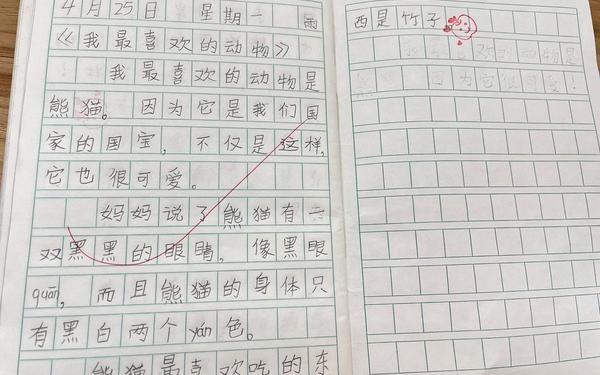 4月25日 星期一 雨
《我最喜欢的动物》
我最喜欢的动物是
熊猫。因为它是我们国
家的国宝，不仅是这样，
它也很可爱。
妈妈说了熊猫有一
双黑黑的眼睛，像黑眼
quān，而且熊猫的身体只
有黑白两个yán色。
熊猫最喜欢吃的东
西是竹子
我最喜欢的动物是
熊猫 因为它很可爱！